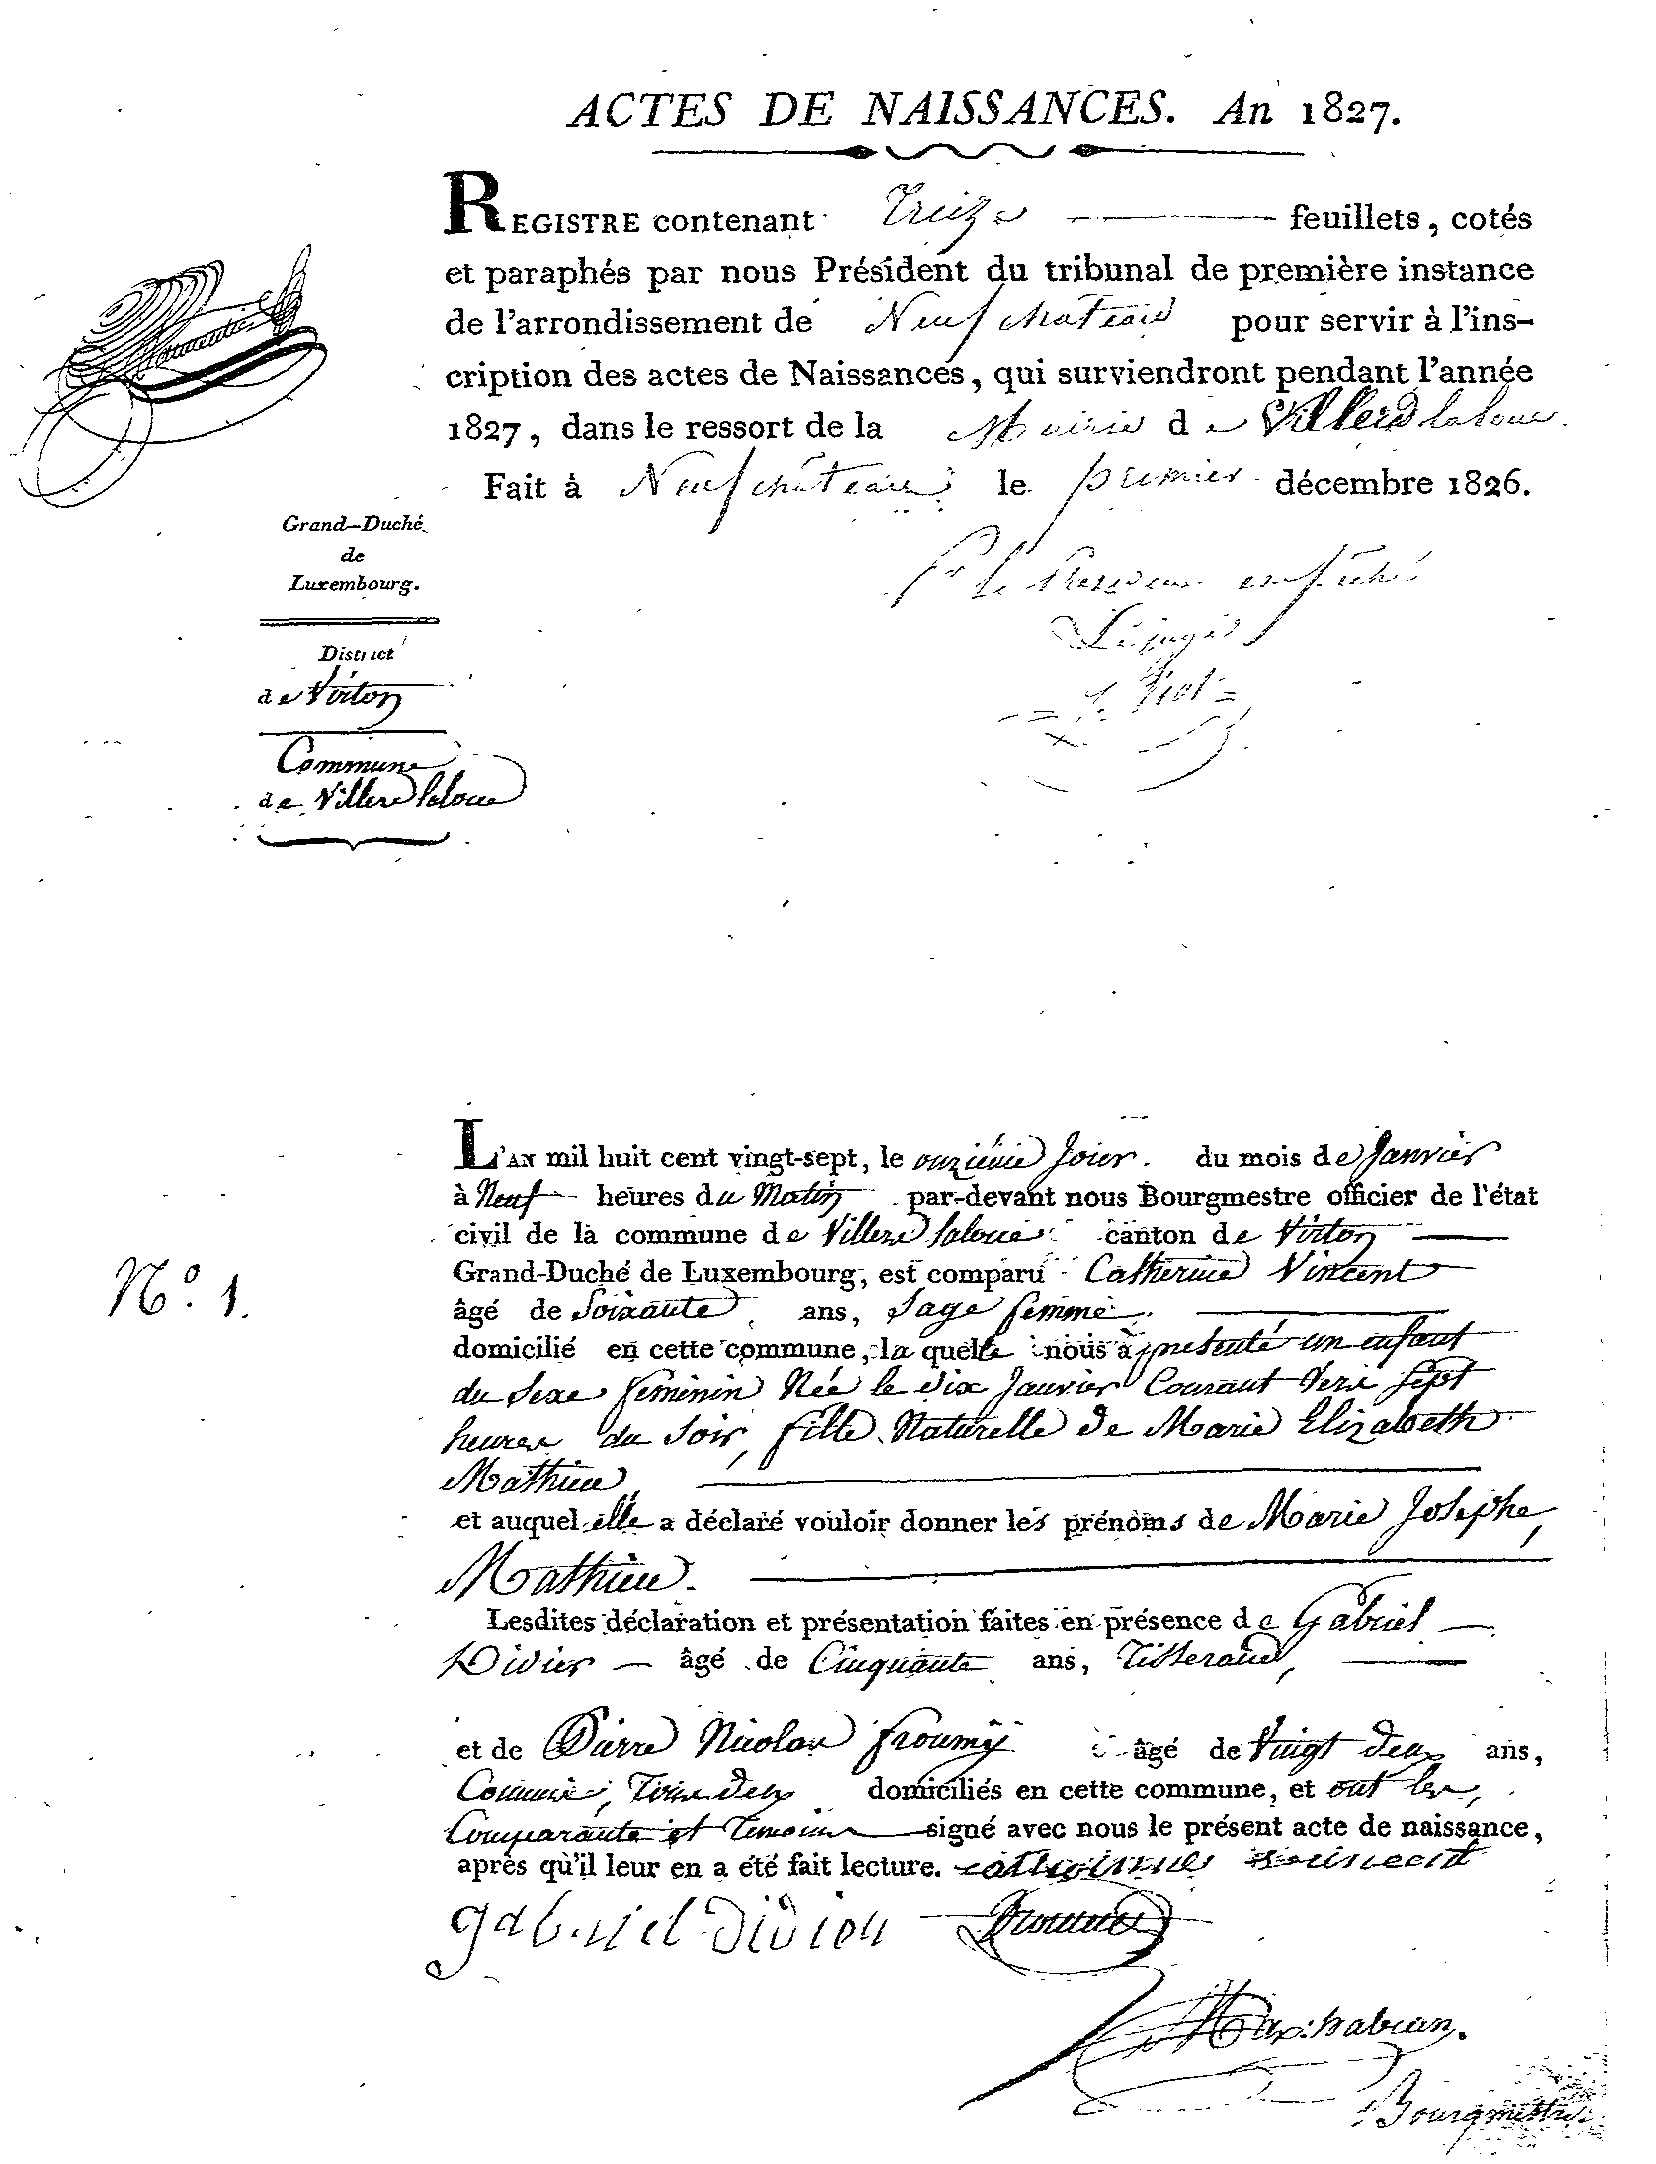 ACTES DE NAISSANCES. An 1827.
REGISTRE contenant Treize feuillets, cotés
et paraphés par nous Président du tribunal de première instance
de l'arrondissement de Neufchateau pour servir à l'ins-
cription des actes de Naissances, qui surviendront pendant l'année
1827, dans le ressort de la Mairie de Villers laloue.
Fait à Neufchâteau le premier décembre 1826.
Grand-Duché
de
Luxembourg.
pr le President empêché
Le juge
District
de Virton
Commune
de Villers laloue
L'AN mil huit cent vingt-sept, le onzième Jour. du mois de Janvier
à Neuf heures du Matin par-devant nous Bourgmestre officier de l'état
civil de la commune de Villers laloue canton de Virton
Grand-Duché de Luxembourg, est comparu Catherine Vincent
N.º 1.
âgé de Soixante ans, Sage femme
domicilié en cette commune, la quelle nous à présenté un enfant
du Sexe feminin Née le dix Janvier Courant vers sept
heures du Soir, fille Naturelle de Marie Elizabeth
Mathieu,
et auquel elle a déclaré vouloir donner les prénoms de Marie Josephe,
Mathieu.
Lesdites déclaration et présentation faites en présence de Gabriel
Didier âgé de Cinquante ans, Tisserand,
et de Pierre Nicolas froumÿ âgé de Vingt deux ans,
Commis, Tous deux domiciliés en cette commune, et ont les,
Comparante et Temoins signé avec nous le présent acte de naissance,
après qu'il leur en a été fait lecture. catherinne vinncent
gabriel didier
Bourgmestre